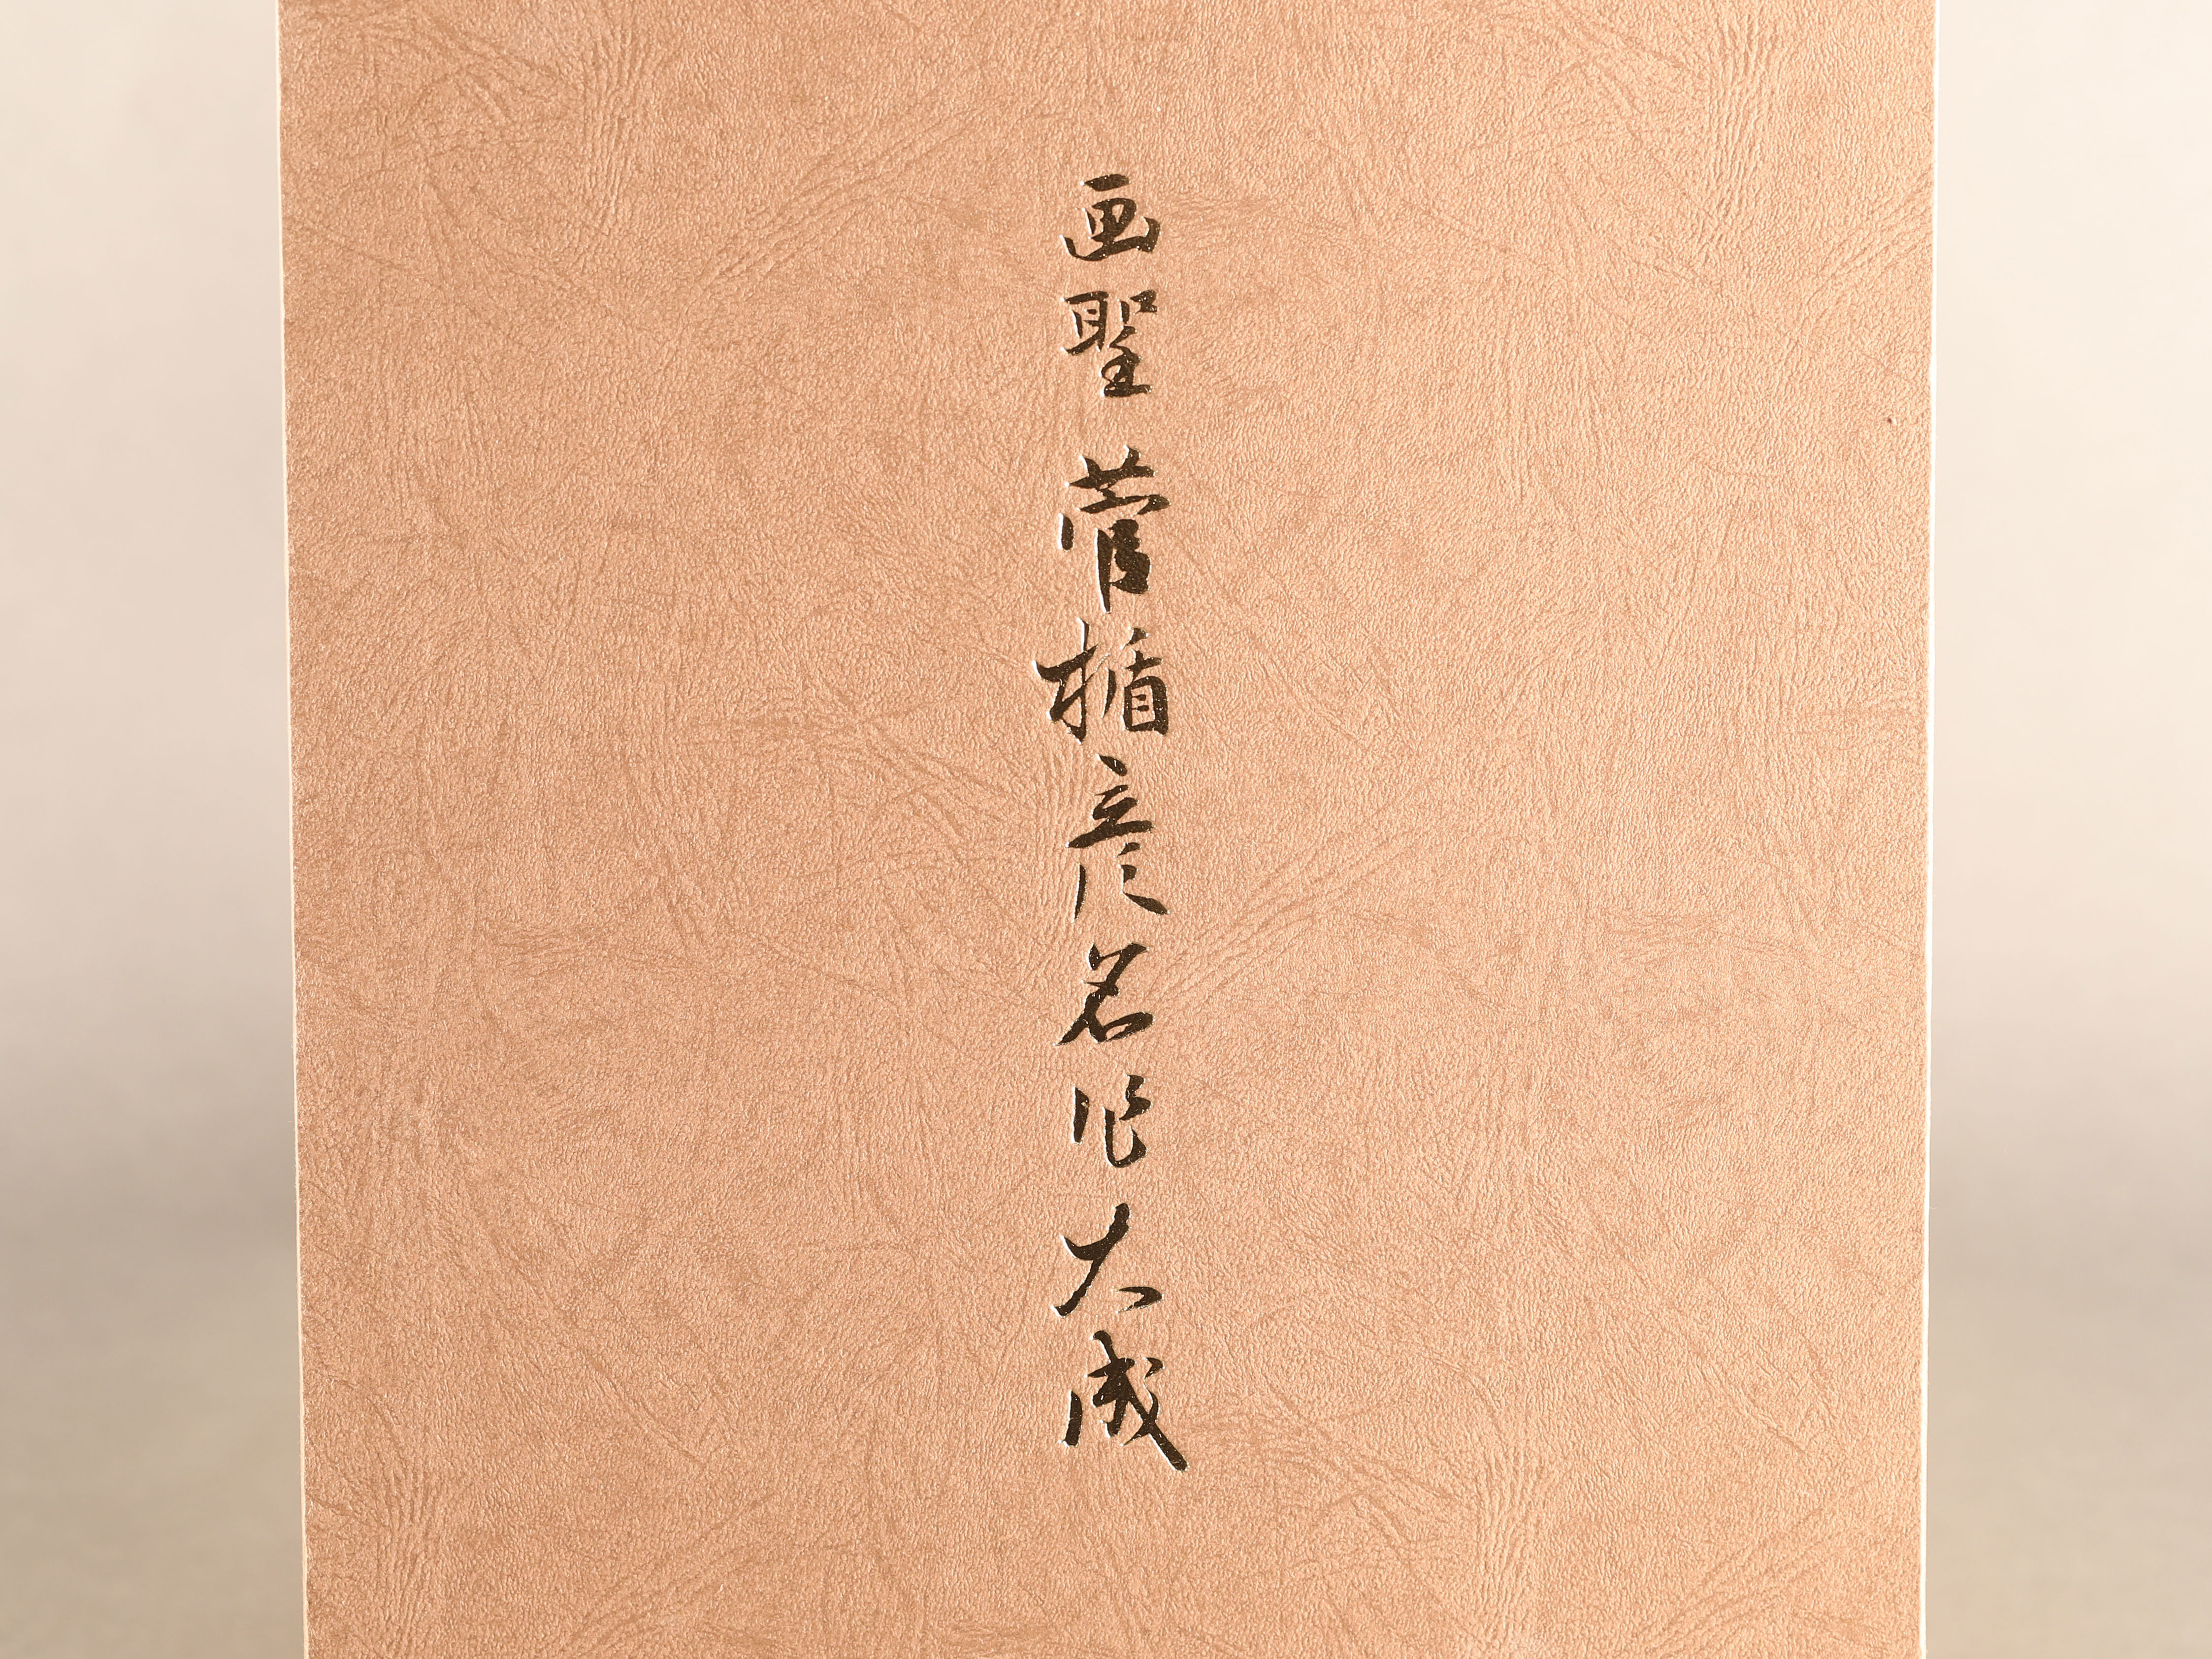 画聖 菅楯彦名作大成